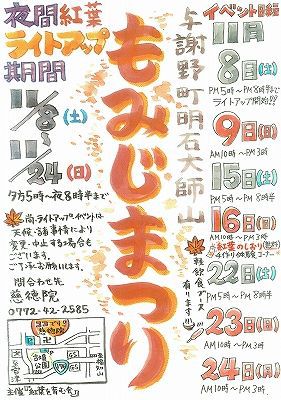 夜間紅葉
ライトアップ
期間
11/8(土)
〜
11/24(日)
夕方5時〜夜8時半まで
尚ライトアップイベントは
天候・諸事情により
変更・中止する場合も
ございます。
ご了承お願います。
問合わせ先
慈徳院
☎0772-42-2585
主催『紅葉を育む会』
与謝野町明石大師山
もみじまつり
軽飲食ブース
有ります!!
イベント日程
11月
8日(土)
PM5時〜PM8時半まで
ライトアップ開始!!
9日(日)
AM10時〜PM3時
15日(土)
PM5時〜PM8時半
16日(日)
AM10時〜PM3時
紅葉のしおり(無料)
手作り体験コーナー
22日(土)
PM5時〜PM8時
23日(日)
AM10時〜PM3時
24日(月)
AM10時〜PM3時